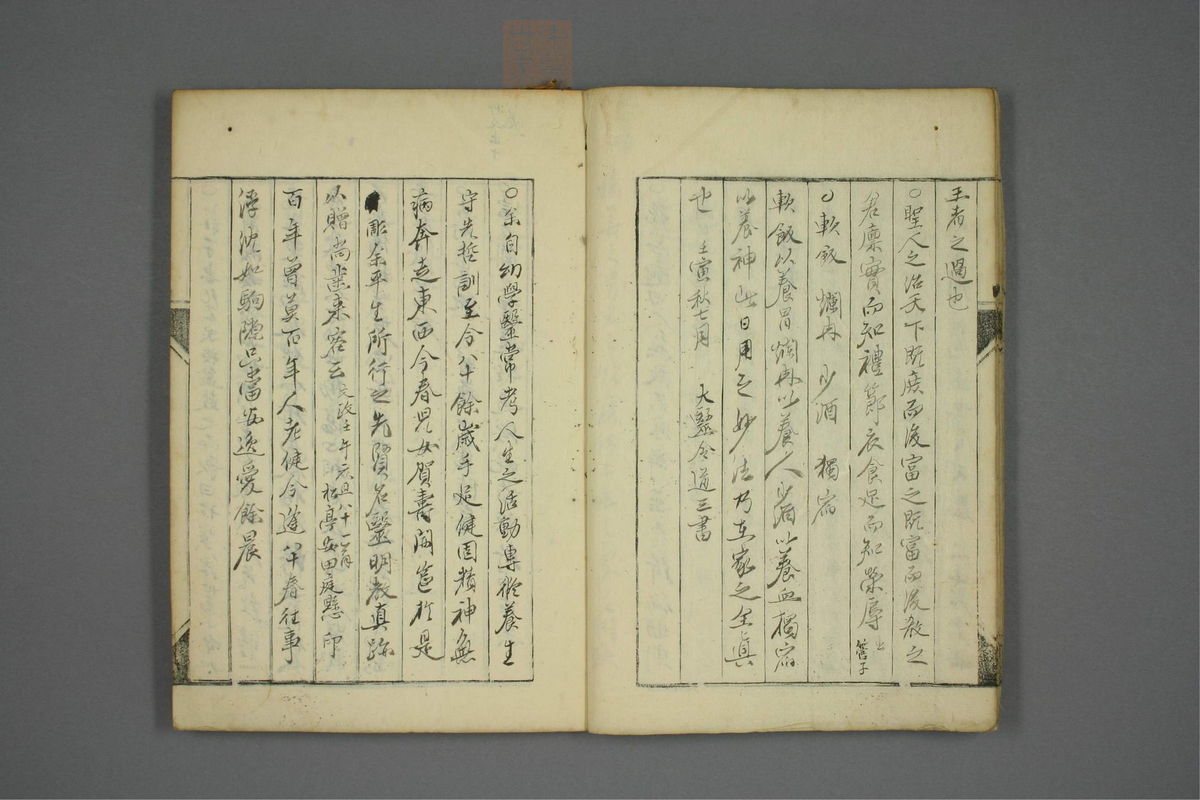 王者之過也
○聖人之治天下既庶而後富之既富而後教之
倉廩實而知禮節衣食足而知榮辱 管子
○軟飯 爛冉 少酒 獨宿
軟飯以養胃爛冉以養人少酒以養血獨宿
以養神此日用之妙法乃在家之全真
也 壬寅秋七月 大醫令道三書
○余自幼學醫常考人生之活動專從養生
守先哲訓至今八十餘歲手足健固精神無
病奔走東西今春兒女賀壽開筵於是
彫余平生所行之先賢名醫明教真跡
以贈尚業來客云 文政壬午元旦八十一翁 松亭安田庭懸印
百年曾莫百年人老健今逢八十春往事
浮沈如駒隙只當安逸愛餘晨